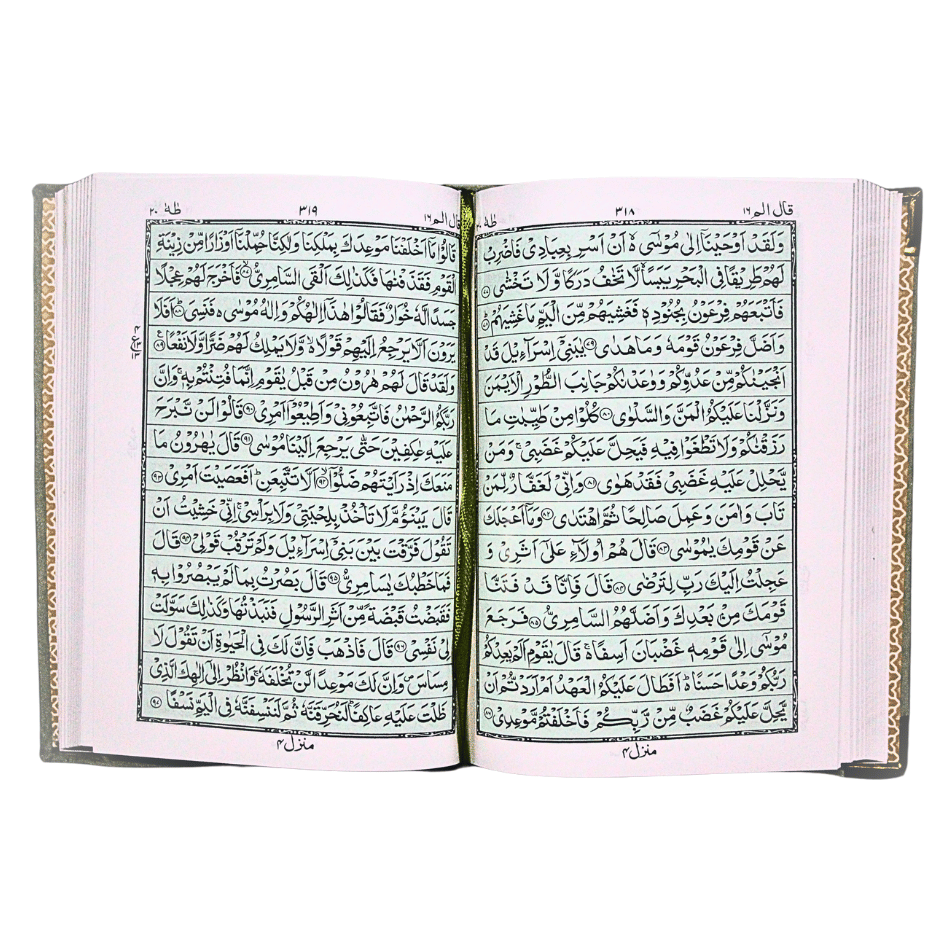 قال الم ١٦
٣١٨
طه ٢٠
وَلَقَدْ اَوْحَيْنَآ اِلٰى مُوْسٰٓى ۙ اَنْ اَسْرِ بِعِبَادِىْ فَاضْرِبْ
لَهُمْ طَرِيْقًا فِى الْبَحْرِ يَبَسًا ۙ لَّا تَخٰفُ دَرَكًا وَّ لَا تَخْشٰى ﴿٧٧﴾
فَاَتْبَعَهُمْ فِرْعَوْنُ بِجُنُوْدِهٖ فَغَشِيَهُمْ مِّنَ الْيَمِّ مَا غَشِيَهُمْ ﴿٧٨﴾
وَ اَضَلَّ فِرْعَوْنُ قَوْمَهٗ وَ مَا هَدٰى ﴿٧٩﴾ يٰبَنِىْٓ اِسْرَآءِيْلَ قَدْ
اَنْجَيْنٰكُمْ مِّنْ عَدُوِّكُمْ وَ وٰعَدْنٰكُمْ جَانِبَ الطُّوْرِ الْاَيْمَنَ
وَ نَزَّلْنَا عَلَيْكُمُ الْمَنَّ وَ السَّلْوٰى ﴿٨٠﴾ كُلُوْا مِنْ طَيِّبٰتِ مَا
رَزَقْنٰكُمْ وَ لَا تَطْغَوْا فِيْهِ فَيَحِلَّ عَلَيْكُمْ غَضَبِىْ ۚ وَ مَنْ
يَّحْلِلْ عَلَيْهِ غَضَبِىْ فَقَدْ هَوٰى ﴿٨١﴾ وَ اِنِّىْ لَغَفَّارٌ لِّمَنْ
تَابَ وَ اٰمَنَ وَ عَمِلَ صَالِحًا ثُمَّ اهْتَدٰى ﴿٨٢﴾ وَ مَآ اَعْجَلَكَ
عَنْ قَوْمِكَ يٰمُوْسٰى ﴿٨٣﴾ قَالَ هُمْ اُولَآءِ عَلٰٓى اَثَرِىْ وَ
عَجِلْتُ اِلَيْكَ رَبِّ لِتَرْضٰى ﴿٨٤﴾ قَالَ فَاِنَّا قَدْ فَتَنَّا
قَوْمَكَ مِنْۢ بَعْدِكَ وَ اَضَلَّهُمُ السَّامِرِىُّ ﴿٨٥﴾ فَرَجَعَ
مُوْسٰٓى اِلٰى قَوْمِهٖ غَضْبَانَ اَسِفًا ۚ قَالَ يٰقَوْمِ اَلَمْ يَعِدْكُمْ
رَبُّكُمْ وَعْدًا حَسَنًا ؕ اَفَطَالَ عَلَيْكُمُ الْعَهْدُ اَمْ اَرَدْتُّمْ اَنْ
يَّحِلَّ عَلَيْكُمْ غَضَبٌ مِّنْ رَّبِّكُمْ فَاَخْلَفْتُمْ مَّوْعِدِىْ ﴿٨٦﴾
منزل ٤
قال الم ١٦
٣١٩
طه ٢٠
قَالُوْا مَآ اَخْلَفْنَا مَوْعِدَكَ بِمَلْكِنَا وَ لٰكِنَّا حُمِّلْنَآ اَوْزَارًا مِّنْ زِيْنَةِ
الْقَوْمِ فَقَذَفْنٰهَا فَكَذٰلِكَ اَلْقَى السَّامِرِىُّ ﴿٨٧﴾ فَاَخْرَجَ لَهُمْ عِجْلًا
جَسَدًا لَّهٗ خُوَارٌ فَقَالُوْا هٰذَآ اِلٰهُكُمْ وَ اِلٰهُ مُوْسٰى ۙ فَنَسِىَ ﴿٨٨﴾ اَفَلَا
يَرَوْنَ اَلَّا يَرْجِعُ اِلَيْهِمْ قَوْلًا ۙ وَّ لَا يَمْلِكُ لَهُمْ ضَرًّا وَّ لَا نَفْعًا ﴿٨٩﴾
وَ لَقَدْ قَالَ لَهُمْ هٰرُوْنُ مِنْ قَبْلُ يٰقَوْمِ اِنَّمَا فُتِنْتُمْ بِهٖ ۚ وَ اِنَّ
رَبَّكُمُ الرَّحْمٰنُ فَاتَّبِعُوْنِىْ وَ اَطِيْعُوْٓا اَمْرِىْ ﴿٩٠﴾ قَالُوْا لَنْ نَّبْرَحَ
عَلَيْهِ عٰكِفِيْنَ حَتّٰى يَرْجِعَ اِلَيْنَا مُوْسٰى ﴿٩١﴾ قَالَ يٰهٰرُوْنُ مَا
مَنَعَكَ اِذْ رَاَيْتَهُمْ ضَلُّوْٓا ﴿٩٢﴾ اَلَّا تَتَّبِعَنِ ؕ اَفَعَصَيْتَ اَمْرِىْ ﴿٩٣﴾
قَالَ يَبْنَؤُمَّ لَا تَاْخُذْ بِلِحْيَتِىْ وَ لَا بِرَاْسِىْ ۚ اِنِّىْ خَشِيْتُ اَنْ
تَقُوْلَ فَرَّقْتَ بَيْنَ بَنِىْٓ اِسْرَآءِيْلَ وَ لَمْ تَرْقُبْ قَوْلِىْ ﴿٩٤﴾ قَالَ
فَمَا خَطْبُكَ يٰسَامِرِىُّ ﴿٩٥﴾ قَالَ بَصُرْتُ بِمَا لَمْ يَبْصُرُوْا بِهٖ
فَقَبَضْتُ قَبْضَةً مِّنْ اَثَرِ الرَّسُوْلِ فَنَبَذْتُهَا وَ كَذٰلِكَ سَوَّلَتْ
لِىْ نَفْسِىْ ﴿٩٦﴾ قَالَ فَاذْهَبْ فَاِنَّ لَكَ فِى الْحَيٰوةِ اَنْ تَقُوْلَ لَا
مِسَاسَ ۪ وَ اِنَّ لَكَ مَوْعِدًا لَّنْ تُخْلَفَهٗ ۚ وَ انْظُرْ اِلٰٓى اِلٰهِكَ الَّذِىْ
ظَلْتَ عَلَيْهِ عَاكِفًا ؕ لَنُحَرِّقَنَّهٗ ثُمَّ لَنَنْسِفَنَّهٗ فِى الْيَمِّ نَسْفًا ﴿٩٧﴾
منزل ٤